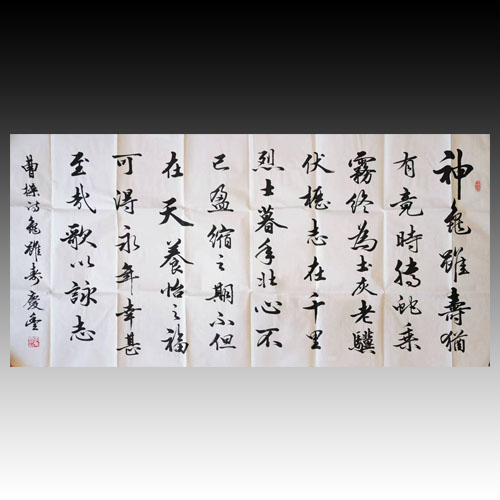 神龜雖壽猶
有竟時騰蛇乘
霧終為土灰老驥
伏櫪志在千里
烈士暮年壯心不
已盈縮之期不但
在天養怡之福
可得永年幸甚
至哉歌以詠志
曹操詩龜雖壽慶奎